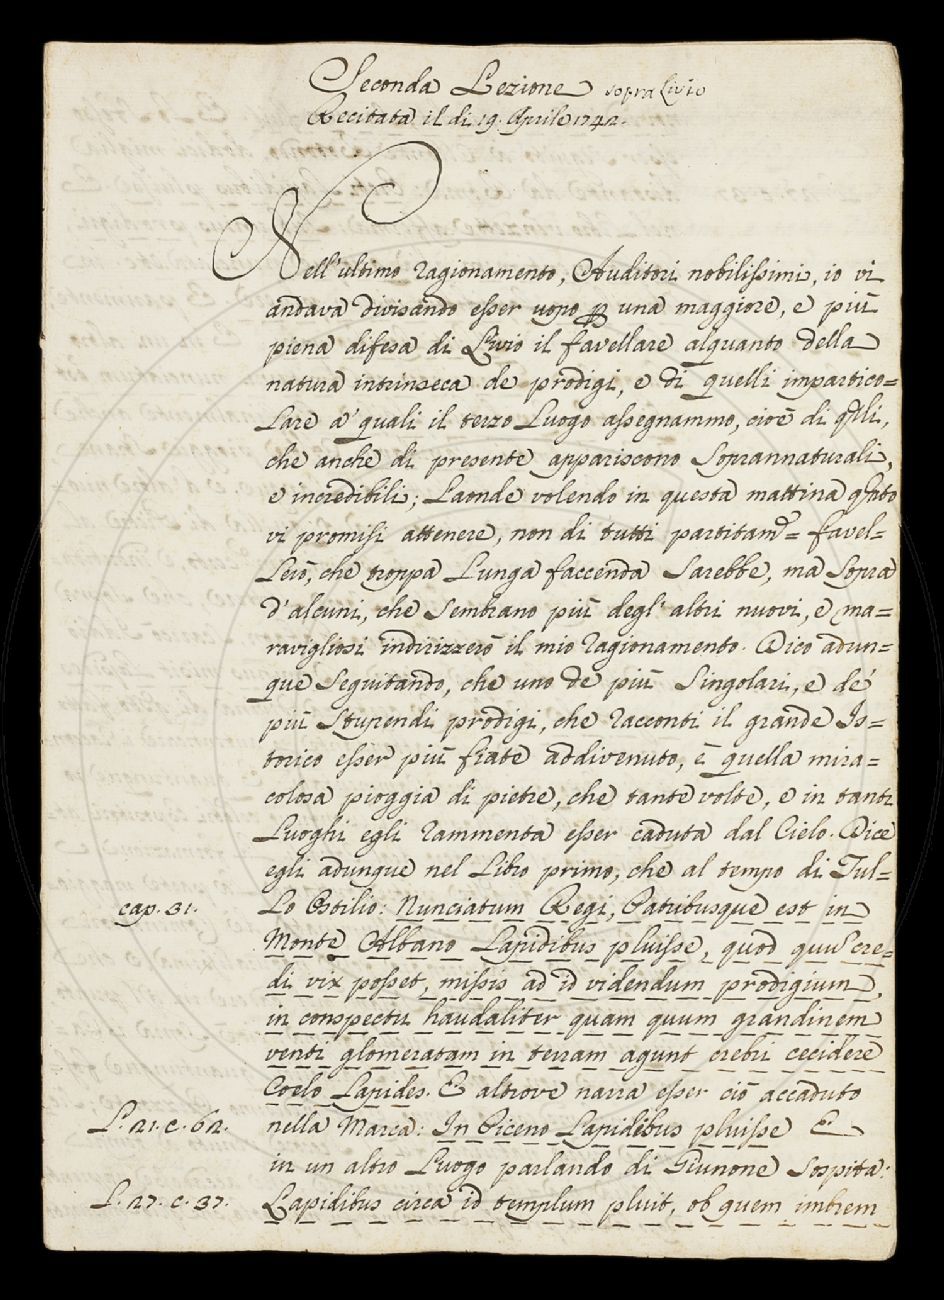 Seconda Lezione sopra Livio
Recitata il di 19. Aprile 1742.
Nell'ultimo ragionamento, Auditori nobilissimi, io vi
andava divisando esser uopo per una maggiore, e più
piena difesa di Livio il favellare alquanto della
natura intrinseca de prodigi, e di quelli impartico=
lare a' quali il terzo luogo assegnammo, cioè di qlli,
che anche di presente appariscono soprannaturali,
e incredibili; Laonde volendo in questa mattina qnto
vi promisi attenere, non di tutti partitam.e = favel=
lerò, che troppa lunga faccenda sarebbe, ma sopra
d'alcuni, che sembrano più degl'altri nuovi, e ma=
ravigliosi indirizzerò il mio ragionamento. Dico adun=
que seguitando, che uno de più singolari, e de'
più stupendi prodigi, che racconti il grande Is=
torico esser più fiate addivenuto, è quella mira=
colosa pioggia di pietre, che tante volte, e in tanti
Luoghi egli rammenta esser caduta dal Cielo. Dice
egli adunque nel Libro primo, che al tempo di Tul=
cap. 31. lo Ostilio: Nunciatum Regi, Patribusque est in
Monte Albano Lapidibus pluisse, quod quum cre=
di vix posset, missis ad id videndum prodigium,
in conspectu haudaliter quam quum grandinem
venti glomeratam in terram agunt crebri cecidere
Coelo Lapides. E altrove narra esser ciò accaduto
L. 21. c. 62. nella Marca: In Piceno Lapidibus pluisse E
in un altro Luogo parlando di Giunone Sospita:
L. 27. c. 37. Lapidibus circa id templum pluit, ob quem imbrem